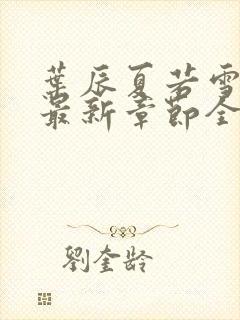 葉辰夏若雪
最新章節全
劉奎齡